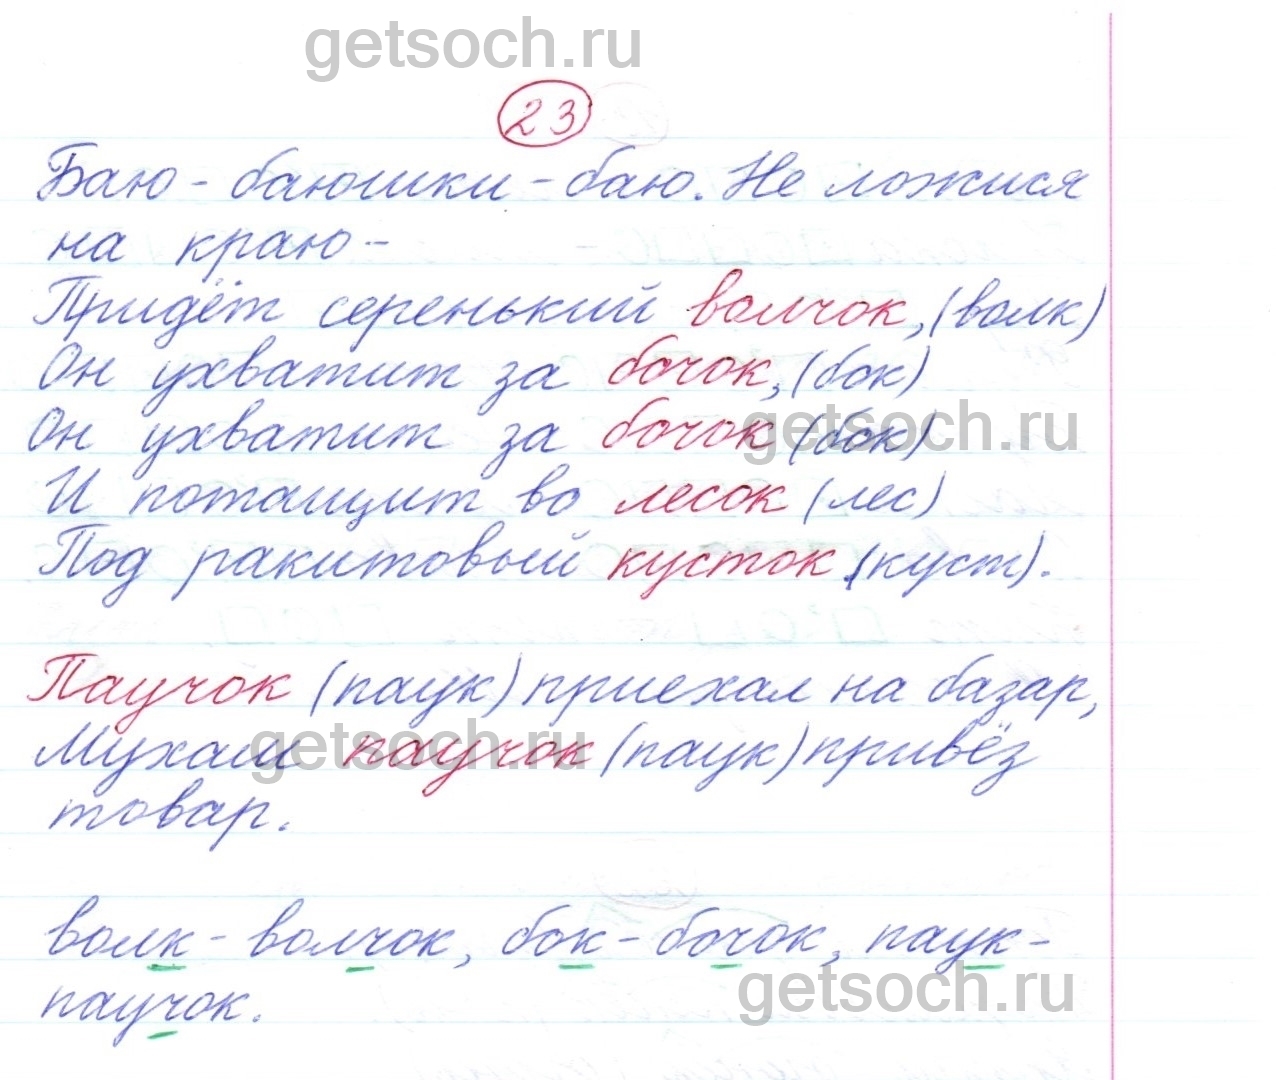 getsoch.ru
23
Баю - баюшки - баю. Не ложися
на краю -
Придёт серенький волчок, (волк)
Он ухватит за бочок, (бок)
Он ухватит за бочок (бок)
getsoch.ru
И потащит во лесок (лес)
Под ракитовый кусток (куст).
Паучок (паук) приехал на базар,
Мухам паучок (паук) привёз
getsoch.ru
товар.
волк - волчок, бок - бочок, паук -
паучок.
getsoch.ru